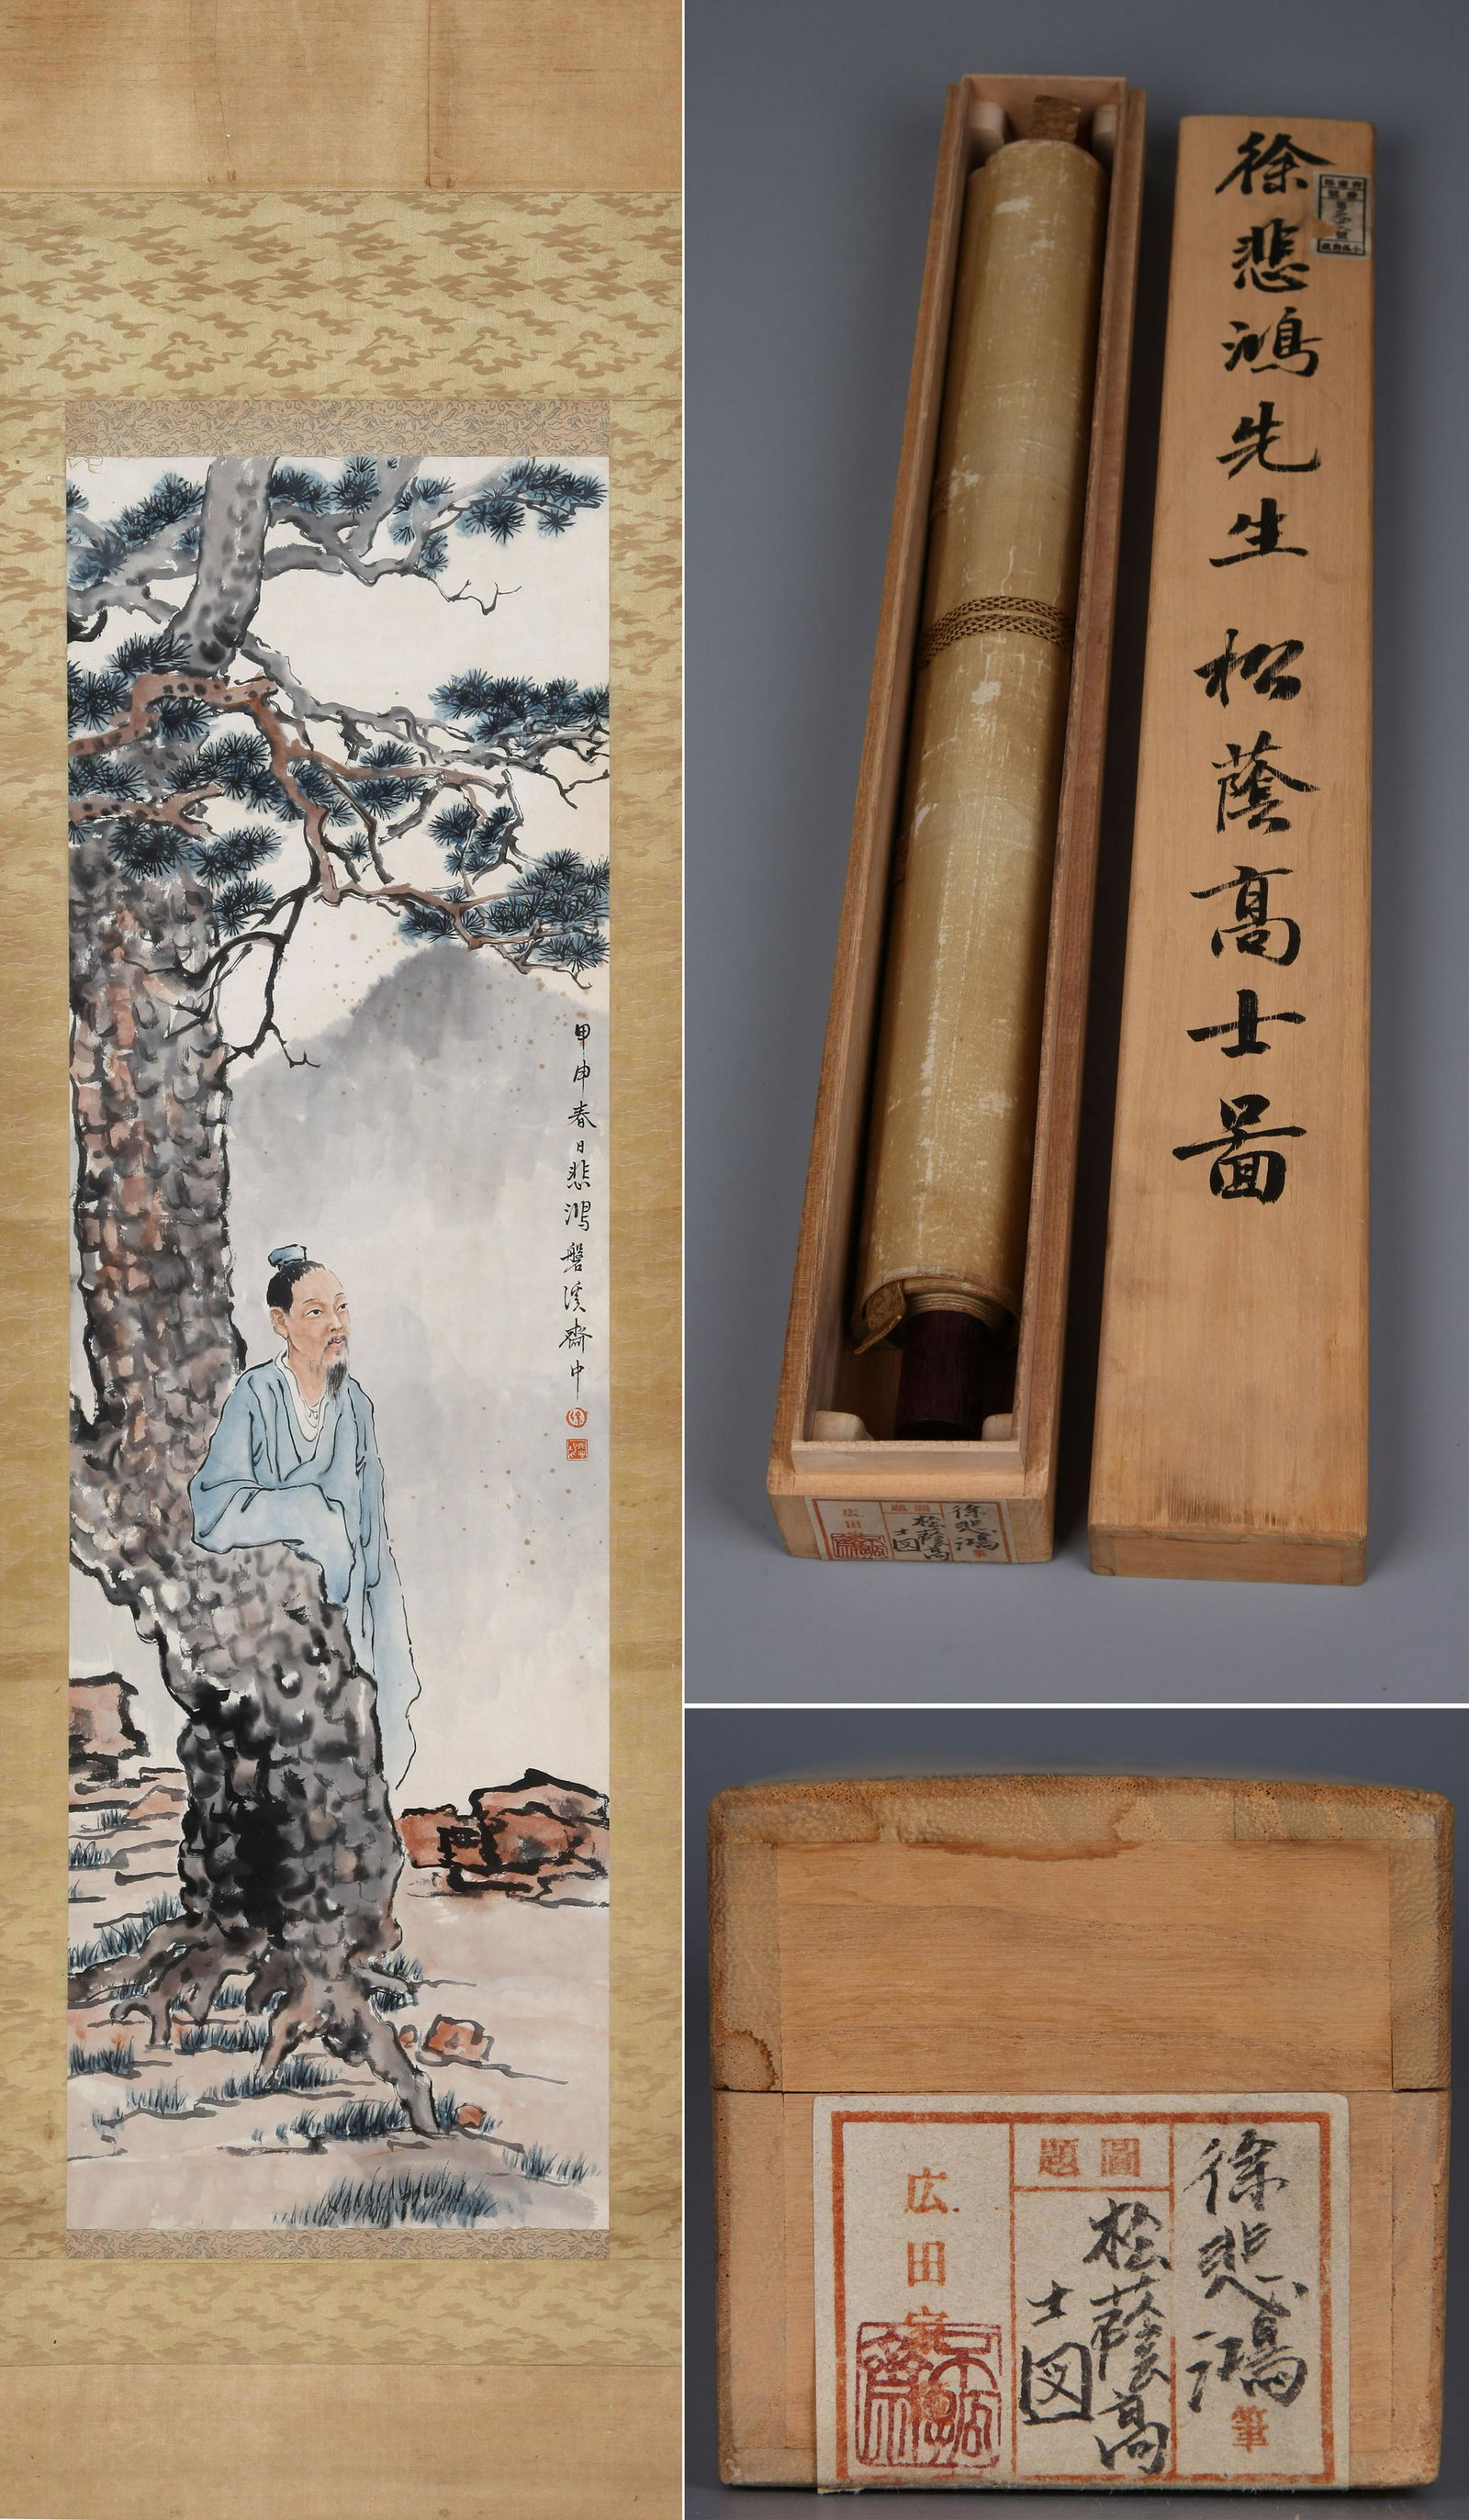 甲申春日悲鴻磐溪齋中
徐
徐悲鴻先生 松蔭高士圖
徐悲鴻筆
圖題
松蔭高
士図
広田
徐悲鴻筆
圖題
松蔭高
士図
広田